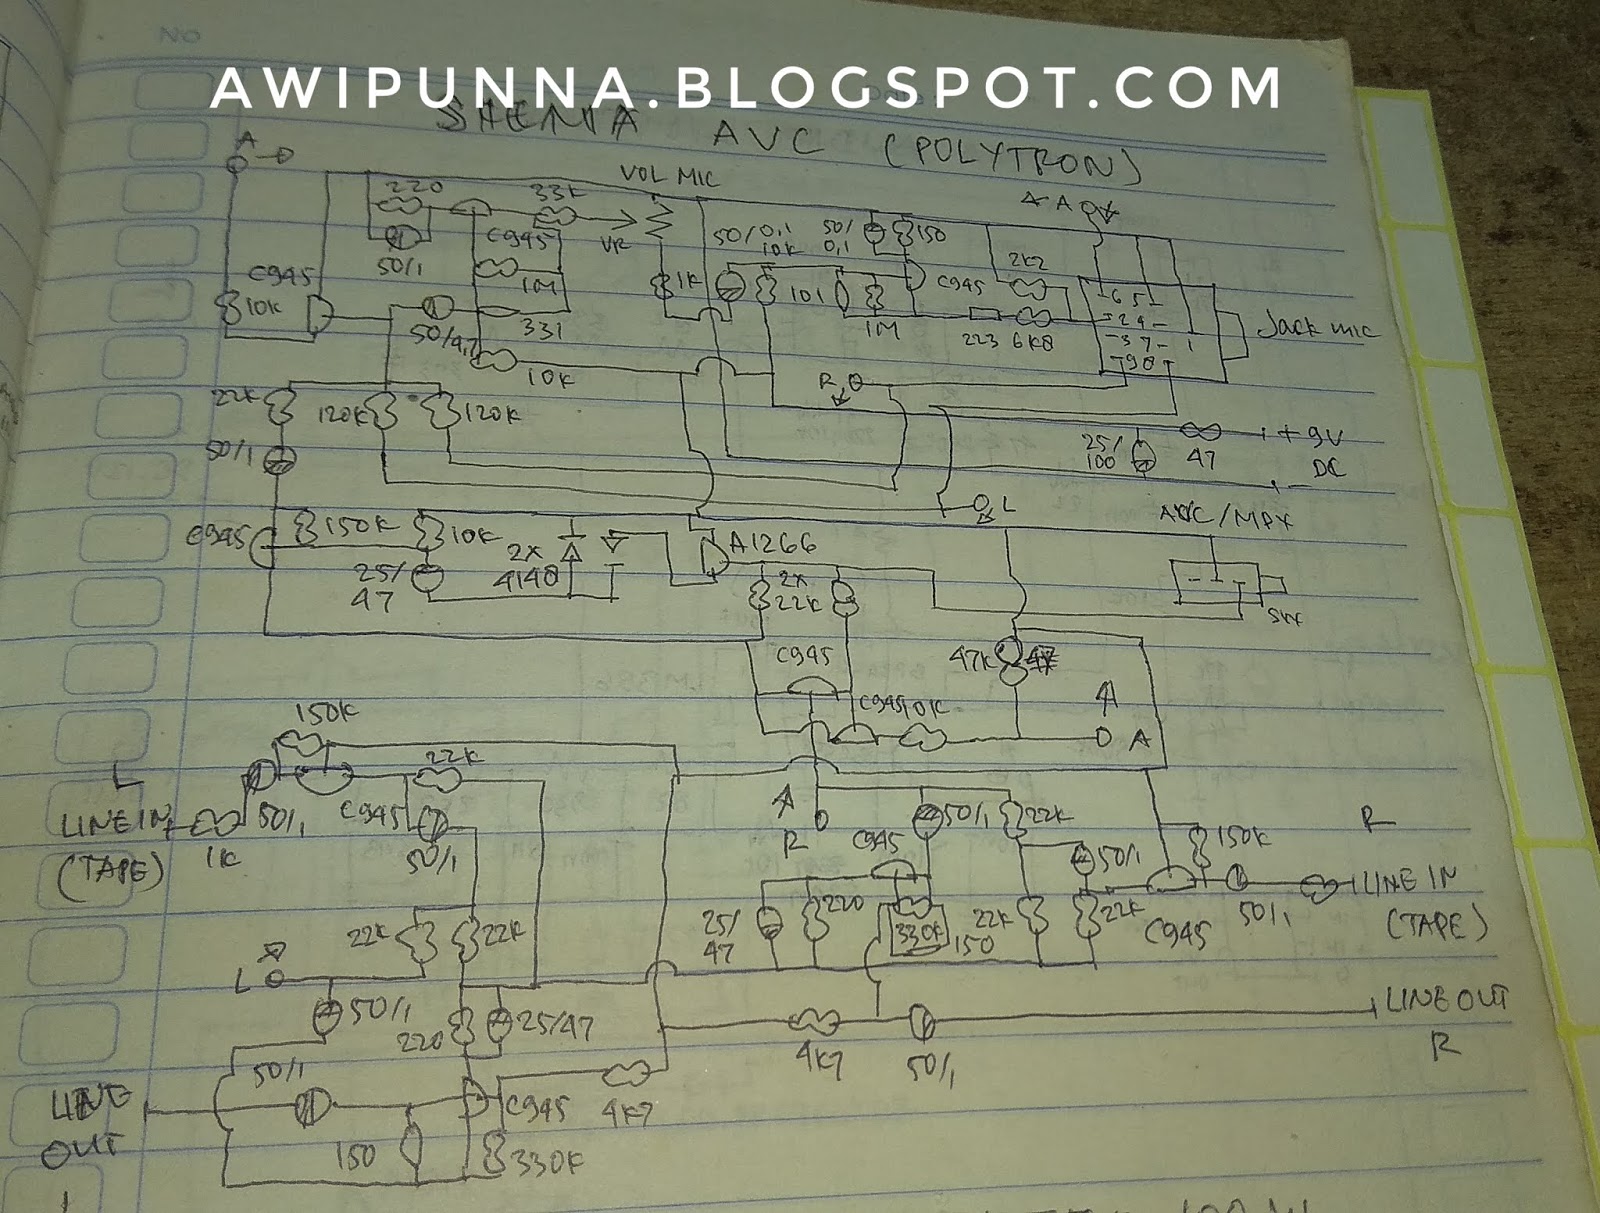 AWIPUNNA.BLOGSPOT.COM
SKEMA AVC (POLYTRON)
A
220
33K
VOL MIC
A
C945
50/1
VR
50/0,1
10K
50/
0,1
150
C945
2K2
C945
10K
1M
1K
101
6 5
2 4
3 7 1
9 8
Jack mic
50/4,7
331
1M
223
6K8
10K
R
22K
120K
120K
50/1
25/
100
47
+ 9V
DC
-
L
AVC/MPX
C945
150K
10K
25/
47
2x
4148
A1266
2x
22K
SW
C945
47K
C945
10K
A
A
150K
22K
L
LINE IN
(TAPE)
1K
50/1
C945
50/1
A
R
C945
50/1
22K
50/1
150K
R
LINE IN
(TAPE)
22K
22K
25/
47
220
330K
150
22K
22K
C945
50/1
L
50/1
220
25/47
LINE OUT
R
4K7
50/1
50/1
LINE
OUT
L
150
C945
4K7
330K